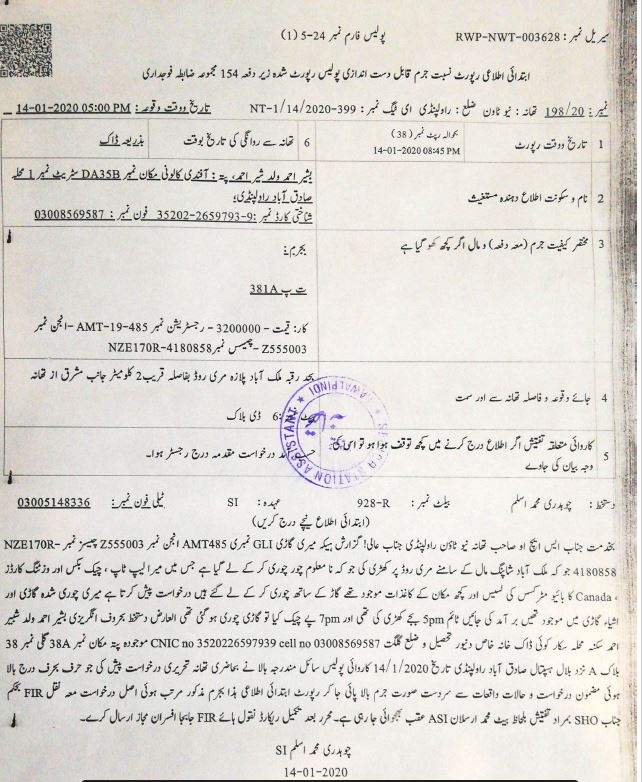 سیریل نمبر : RWP-NWT-003628 پولیس فارم نمبر 24-5 (1)
ابتدائی اطلاعی رپورٹ نسبت جرم قابل دست اندازی پولیس رپورٹ شدہ زیر دفعہ 154 مجموعہ ضابطہ فوجداری
نمبر : 198/20 تھانہ : نیو ٹاون ضلع : راولپنڈی ای ٹیگ نمبر : NT-1/14/2020-399 تاریخ ووقت وقوعہ : 14-01-2020 05:00 PM
1 تاریخ ووقت رپورٹ بحوالہ رپٹ نمبر (38) 14-01-2020 08:45 PM 6 تھانہ سے روانگی کی تاریخ بوقت بذریعہ ڈاک
2 نام و سکونت اطلاع دہندہ مستغیث بشیر احمد ولد شیر احمد، پتہ : آفندی کالونی مکان نمبر DA35B سٹریٹ نمبر 1 محلہ
صادق آباد راولپنڈی،
شناختی کارڈ نمبر : 35202-2659793-9 فون نمبر : 03008569587
3 مختصر کیفیت جرم (معہ دفعہ) و مال اگر کچھ کھو گیا ہے بجرم :
ت پ 381A
کار: قیمت - 3200000 - رجسٹریشن نمبر AMT-19-485 -انجن نمبر
Z555003 -چیسس نمبر NZE170R-4180858
4 جائے وقوعہ و فاصلہ تھانہ سے اور سمت بحد رقبہ ملک آباد پلازہ مری روڈ بفاصلہ قریب 2 کلومیٹر جانب مشرق از تھانہ
نمبر : 6 ڈی بلاک
5 کاروائی متعلقہ تفتیش اگر اطلاع درج کرنے میں کچھ توقف ہوا ہو تو اس کی
وجہ بیان کی جاوے
درخواست مقدمہ درج رجسٹر ہوا۔
SENIOR STATION ASSISTANT RAWALPINDI
دستخط : چوہدری محمد اسلم بیلٹ نمبر : 928-R عہدہ : SI ٹیلی فون نمبر : 03005148336
(ابتدائی اطلاع نیچے درج کریں)
بخدمت جناب ایس ایچ او صاحب تھانہ نیو ٹاؤن راولپنڈی جناب عالی! گزارش ہیکہ میری گاڑی GLI نمبری AMT485 انجن نمبر Z555003 چیسز نمبر NZE170R-
4180858 جو کہ ملک آباد شاپنگ مال کے سامنے مری روڈ پر کھڑی کی جو کہ نا معلوم چور چوری کر کے لے گیا ہے جس میں میرا لیپ ٹاپ ، چیک بکس اور وزٹنگ کارڈز
، Canada کا بائیو میٹرکس کی لسیس اور کچھ مکان کے کاغذات موجود تھے گاڑ کے ساتھ چوری کر کے لے گئے ہیں درخواست پیش کرتا ہے میری چوری شدہ گاڑی اور
اشیاء گاڑی میں موجود تھیں بر آمد کی جائیں ٹائم 5pm بجے کھڑی کی تھی اور 7pm پے چیک کیا تو گاڑی چوری ہو گئی تھی العارض دستخط بحروف انگریزی بشیر احمد ولد شیر
احمد سکنہ محلہ سکار کوئی ڈاک خانہ خاص دنیور تحصیل و ضلع گلگت CNIC no 3520226597939 cell no 03008569587 موجودہ پتہ مکان نمبر 38A گلی نمبر 38
بلاک A نزد بلال ہسپتال صادق آباد راولپنڈی تاریخ 14/1/2020 کاروائی پولیس سائل مندرجہ بالا نے بحاضری تھانہ تحریری درخواست پیش کی جو حرف بحرف درج بالا
ہوئی مضمون درخواست و حالات واقعات سے سردست صورت جرم بالا پائی جا کر رپورٹ ابتدائی اطلاعی ہذا بجرم مذکور مرتب ہوئی اصل درخواست معہ نقل FIR بحکم
جناب SHO بمراد تفتیش بلحاظ بیٹ محمد ارسلان ASI عقب بھجوائی جا رہی ہے۔ محرر بعد تکمیل ریکارڈ نقول ہائے FIR جابجا افسران مجاز ارسال کرے۔
چوہدری محمد اسلم SI
14-01-2020